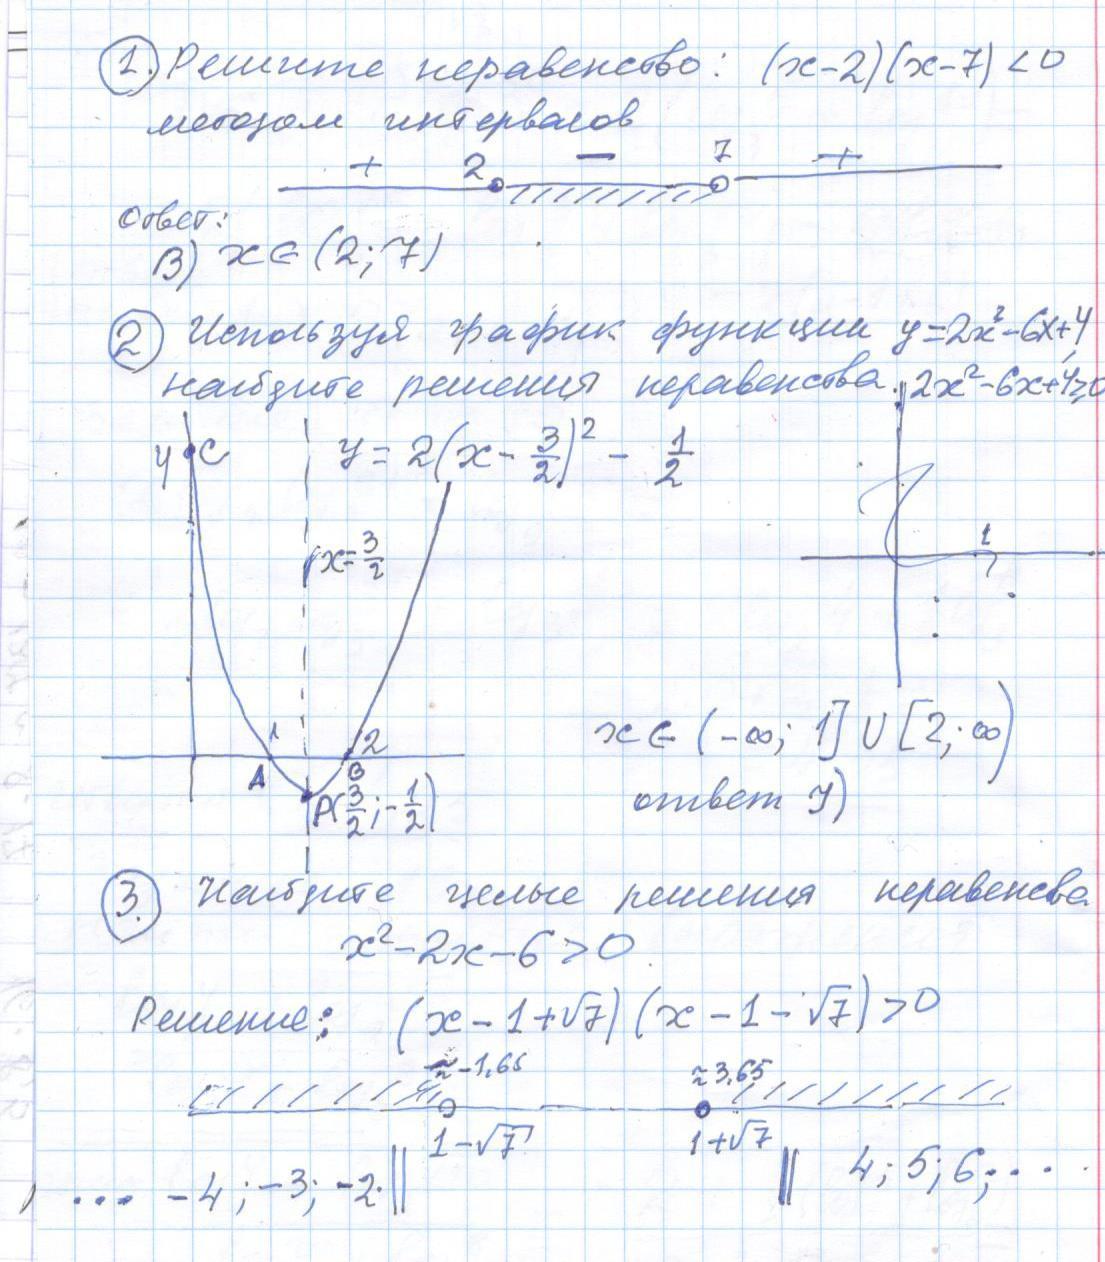 1. Решите неравенство: (x-2)(x-7) < 0
методом интервалов
+ 2 − 7 +
Ответ:
В) x ∈ (2; 7)
2 Используя график функции y=2x²-6x+4,
найдите решения неравенства. 2x²-6x+4≥0
y C y = 2(x - 3/2)² - 1/2
x = 3/2
1
1 2
A B
P(3/2; -1/2)
x ∈ (-∞; 1] ∪ [2; ∞)
ответ У)
3. Найдите целые решения неравенства
x² - 2x - 6 > 0
Решение: (x - 1 + √7)(x - 1 - √7) > 0
≈ -1,65 ≈ 3,65
1 - √7 1 + √7
... -4; -3; -2 || || 4; 5; 6; ...